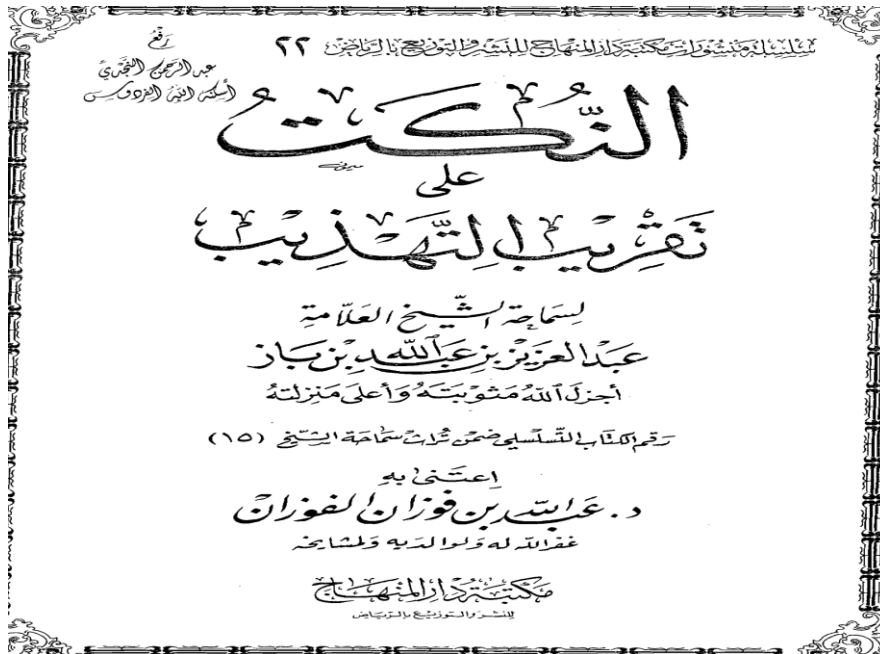 سلسلة منشورات مكتبة دار المنهاج للنشر والتوزيع بالرياض ٢٢
رفع
عبد الرحمن النجدي
أسكنه الله الفردوس
النُّكَتُ
على
تَقْرِيْبِ التَّهْذِيْبِ
لِسَمَاحَةِ الشَّيْخِ العَلَّامَةِ
عَبْدِ العَزِيْزِ بْنِ عَبْدِ اللهِ بْنِ بَاز
أجزلَ اللهُ مَثُوبَتَهُ وَأعلَى مَنزِلَتَهُ
رقم الكتاب التسلسلي ضمن تراث سماحة الشيخ (١٥)
اِعتَنى بهِ
د. عَبْد اللّه بن فوزان الفوزان
غفر الله له ولوالديه ولمشايخه
مكتبة دار المنهاج
للنشر والتوزيع بالرياض